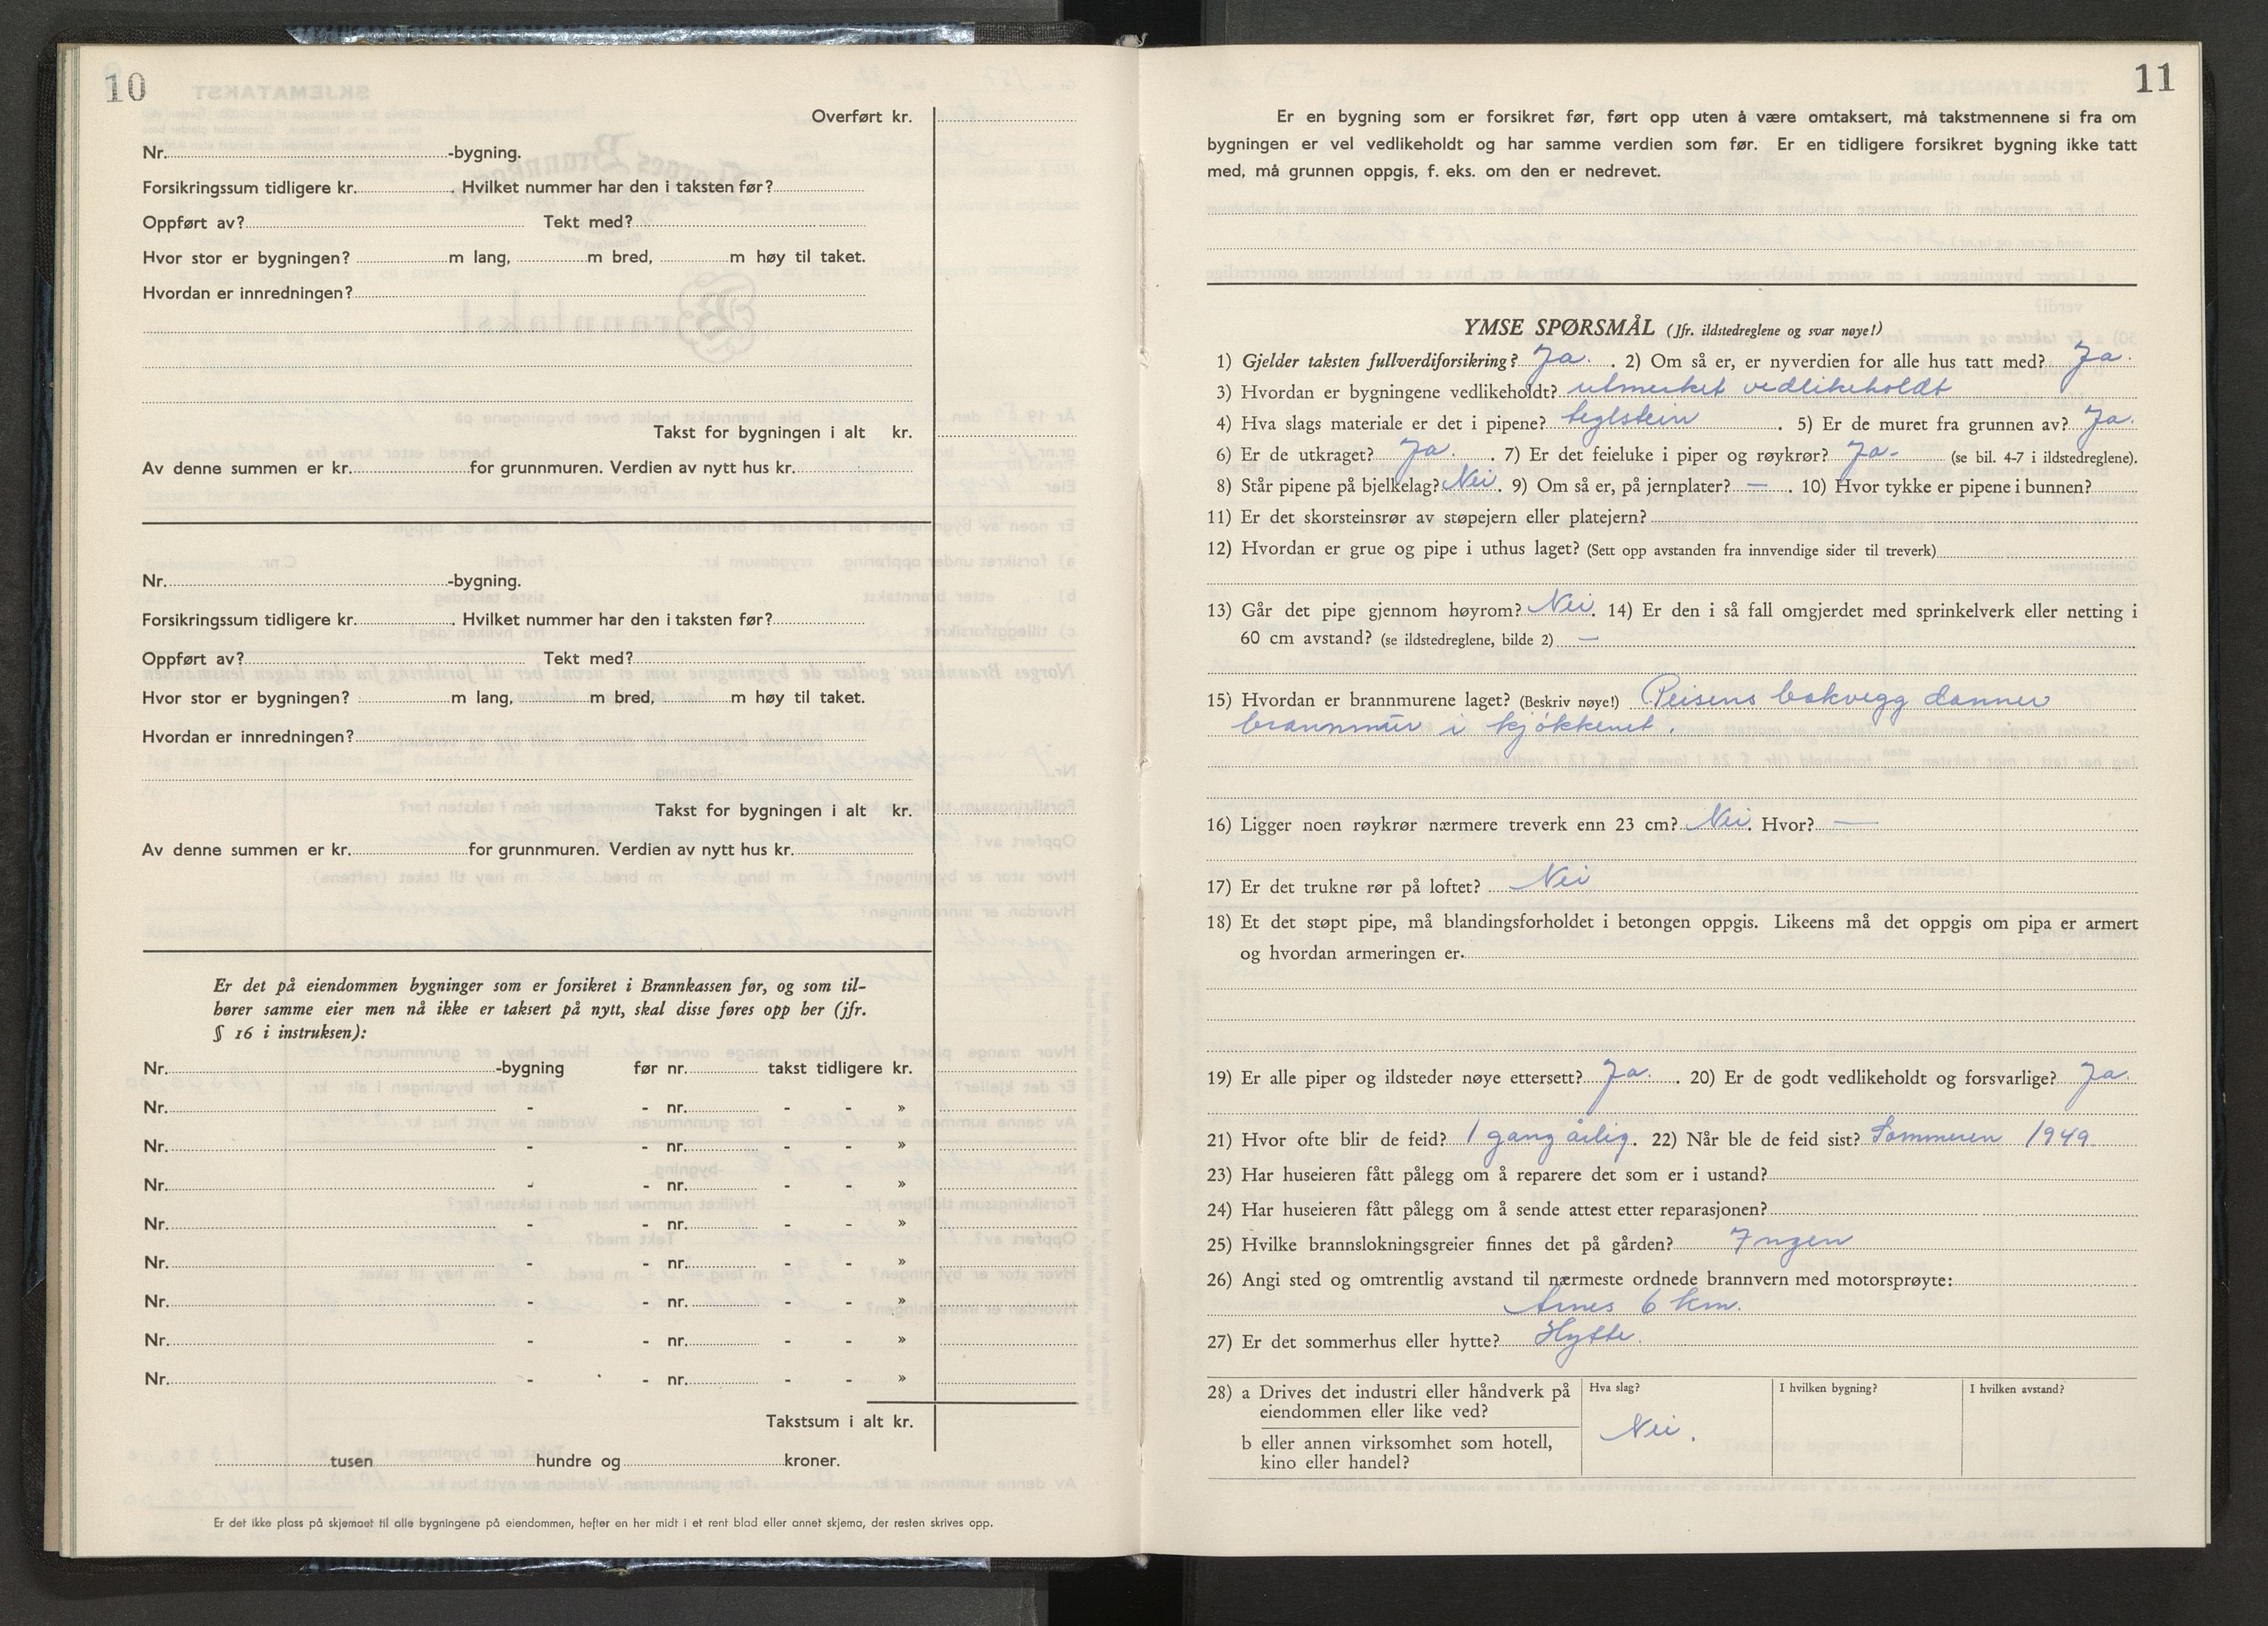 10
Overført kr.
Nr. -bygning.
Forsikringssum tidligere kr. . Hvilket nummer har den i taksten før?
Oppført av? Tekt med?
Hvor stor er bygningen? m lang, m bred, m høy til taket.
Hvordan er innredningen?
Takst for bygningen i alt kr.
Av denne summen er kr. for grunnmuren. Verdien av nytt hus kr.
Nr. -bygning.
Forsikringssum tidligere kr. . Hvilket nummer har den i taksten før?
Oppført av? Tekt med?
Hvor stor er bygningen? m lang, m bred, m høy til taket.
Hvordan er innredningen?
Takst for bygningen i alt kr.
Av denne summen er kr. for grunnmuren. Verdien av nytt hus kr.
Er det på eiendommen bygninger som er forsikret i Brannkassen før, og som til-
hører samme eier men nå ikke er taksert på nytt, skal disse føres opp her (jfr.
§ 16 i instruksen):
Nr. -bygning før nr. takst tidligere kr.
Nr. - - nr. - - »
Nr. - - nr. - - »
Nr. - - nr. - - »
Nr. - - nr. - - »
Nr. - - nr. - - »
Nr. - - nr. - - »
Nr. - - nr. - - »
Nr. - - nr. - - »
Takstsum i alt kr.
tusen hundre og kroner.
Er det ikke plass på skjemaet til alle bygningene på eiendommen, hefter en her midt i et rent blad eller annet skjema, der resten skrives opp.
11
Er en bygning som er forsikret før, ført opp uten å være omtaksert, må takstmennene si fra om
bygningen er vel vedlikeholdt og har samme verdien som før. Er en tidligere forsikret bygning ikke tatt
med, må grunnen oppgis, f. eks. om den er nedrevet.
YMSE SPØRSMÅL (Jfr. ildstedreglene og svar nøye!)
1) Gjelder taksten fullverdiforsikring? Ja. . 2) Om så er, er nyverdien for alle hus tatt med? Ja.
3) Hvordan er bygningene vedlikeholdt? utmerket vedlikeholdt
4) Hva slags materiale er det i pipene? teglstein . 5) Er de muret fra grunnen av? Ja.
6) Er de utkraget? Ja. . 7) Er det feieluke i piper og røykrør? Ja- (se bil. 4-7 i ildstedreglene).
8) Står pipene på bjelkelag? Nei. 9) Om så er, på jernplater? — . 10) Hvor tykke er pipene i bunnen?
11) Er det skorsteinsrør av støpejern eller platejern?
12) Hvordan er grue og pipe i uthus laget? (Sett opp avstanden fra innvendige sider til treverk)
13) Går det pipe gjennom høyrom? Nei. 14) Er den i så fall omgjerdet med sprinkelverk eller netting i
60 cm avstand? (se ildstedreglene, bilde 2) —
15) Hvordan er brannmurene laget? (Beskriv nøye!) Peisens bakvegg danner
brannmur i kjøkkenet.
16) Ligger noen røykrør nærmere treverk enn 23 cm? Nei. Hvor? —
17) Er det trukne rør på loftet? Nei
18) Et det støpt pipe, må blandingsforholdet i betongen oppgis. Likeens må det oppgis om pipa er armert
og hvordan armeringen er.
19) Er alle piper og ildsteder nøye ettersett? Ja. . 20) Er de godt vedlikeholdt og forsvarlige? Ja.
21) Hvor ofte blir de feid? 1 gang årlig. 22) Når ble de feid sist? Sommeren 1949
23) Har huseieren fått pålegg om å reparere det som er i ustand?
24) Har huseieren fått pålegg om å sende attest etter reparasjonen?
25) Hvilke brannslokningsgreier finnes det på gården? Ingen
26) Angi sted og omtrentlig avstand til nærmeste ordnede brannvern med motorsprøyte:
Årnes 6 km.
27) Er det sommerhus eller hytte? Hytte.
28) a Drives det industri eller håndverk på
eiendommen eller like ved?
b eller annen virksomhet som hotell,
kino eller handel?
Hva slag?
Nei.
I hvilken bygning?
I hvilken avstand?